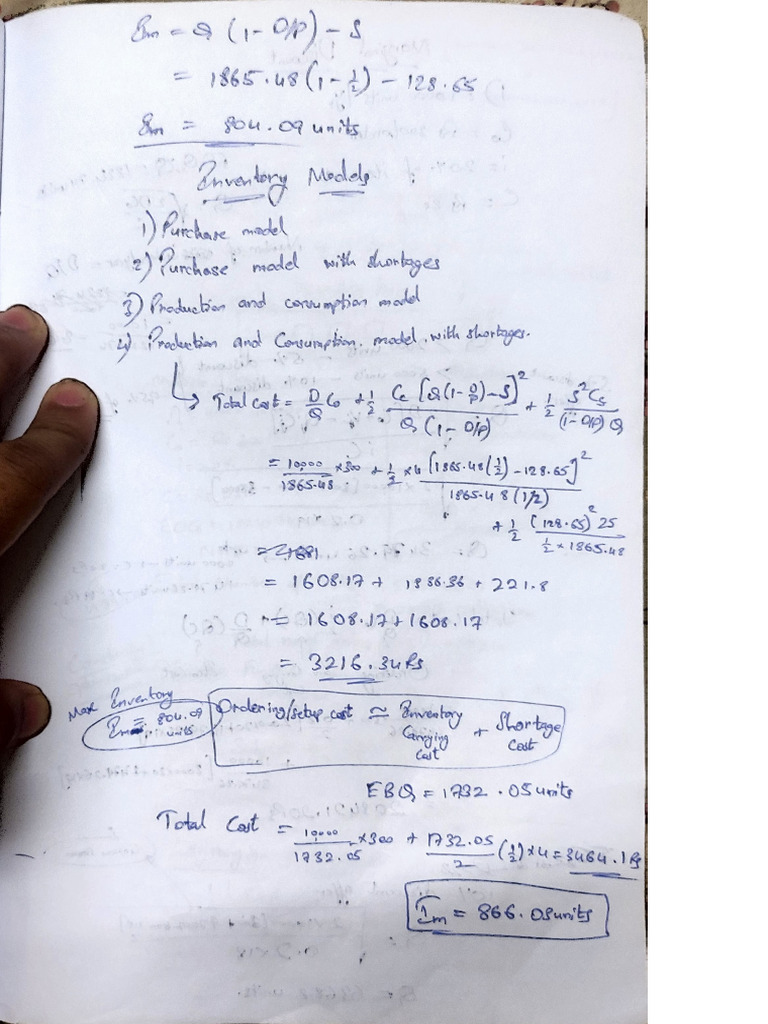 Im = Q (1 - D/P) - S
= 1865.48 (1 - 1/2) - 128.65
Im = 804.09 units
Inventory Models :
1) Purchase model
2) Purchase model with shortages
3) Production and consumption model
4) Production and Consumption model with shortages.
Total cost = D/Q C0 + 1/2 Cc [Q(1-D/P)-S]^2 / Q(1-D/P) + 1/2 S^2 Cs / (1-D/P) Q
= 10,000/1865.48 × 300 + 1/2 × 4 [1865.48(1/2) - 128.65]^2 / 1865.48 (1/2)
+ 1/2 (128.65)^2 25 / 1/2 × 1865.48
= 1608.17 + 1386.36 + 221.8
= 1608.17 + 1608.17
= 3216.34 Rs
Max Inventory
Im = 804.09 units
Ordering/setup cost ≃ Inventory Carrying cost + Shortage cost
EBQ = 1732.05 units
Total Cost = 10,000/1732.05 × 300 + 1732.05/2 (1/2) × 4 = 3464.1 Rs
Im = 866.03 units